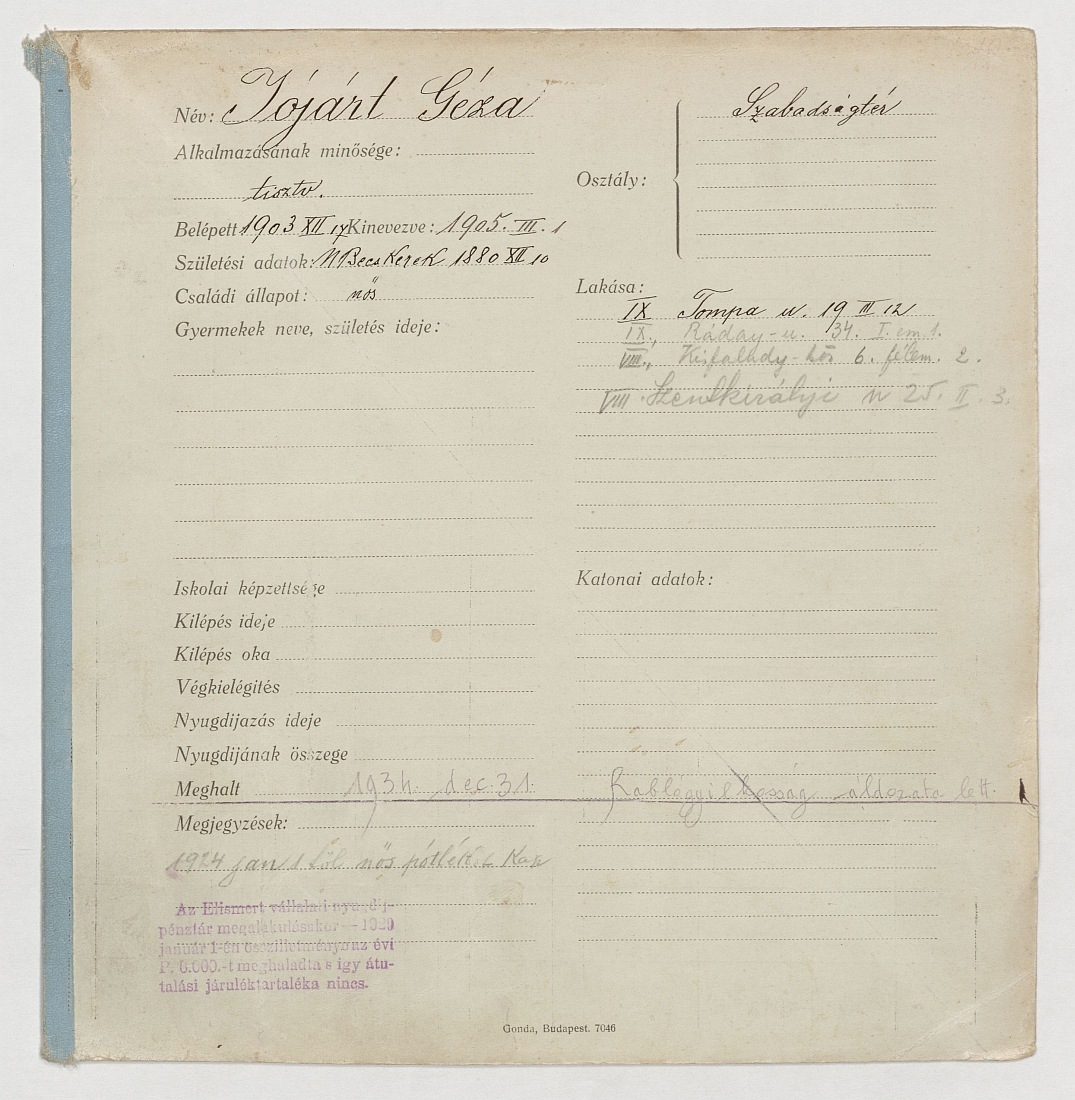 Név: Jójárt Géza
Alkalmazásának minősége:
tisztv.
Belépett 1903 XII 17 Kinevezve: 1905. III. 1
Születési adatok: N Becskerek 1880 XII 10
Családi állapot: nős
Gyermekek neve, születés ideje:
Iskolai képzettsége
Kilépés ideje
Kilépés oka
Végkielégités
Nyugdijazás ideje
Nyugdijának összege
Meghalt 1934. dec. 31.
Megjegyzések:
1924 jan 1 től nős pótlékot kap
Az Elismert vállalati nyugdij-
pénztár megalakulásakor — 1929
január 1-én összilletménye az évi
P. 6.000.-t meghaladta s igy átu-
talási járuléktartaléka nincs.
Osztály:
Szabadságtér
Lakása:
IX Tompa u. 19 III 12
IX., Ráday-u. 34. I. em. 1.
VIII., Kisfaludy-köz 6. félem. 2.
VIII. Szentkirályi u 25. II. 3.
Katonai adatok:
Rablógyilkosság áldozata lett.
Gonda, Budapest. 7046